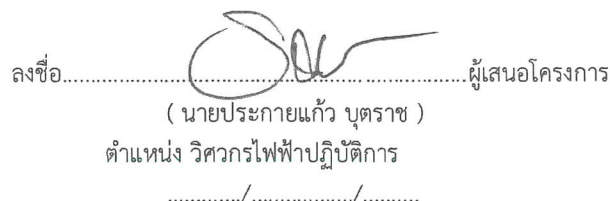 ลงชื่อ..................................................................ผู้เสนอโครงการ
( นายประกายแก้ว บุตราช )
ตำแหน่ง วิศวกรไฟฟ้าปฏิบัติการ
............../..................../............